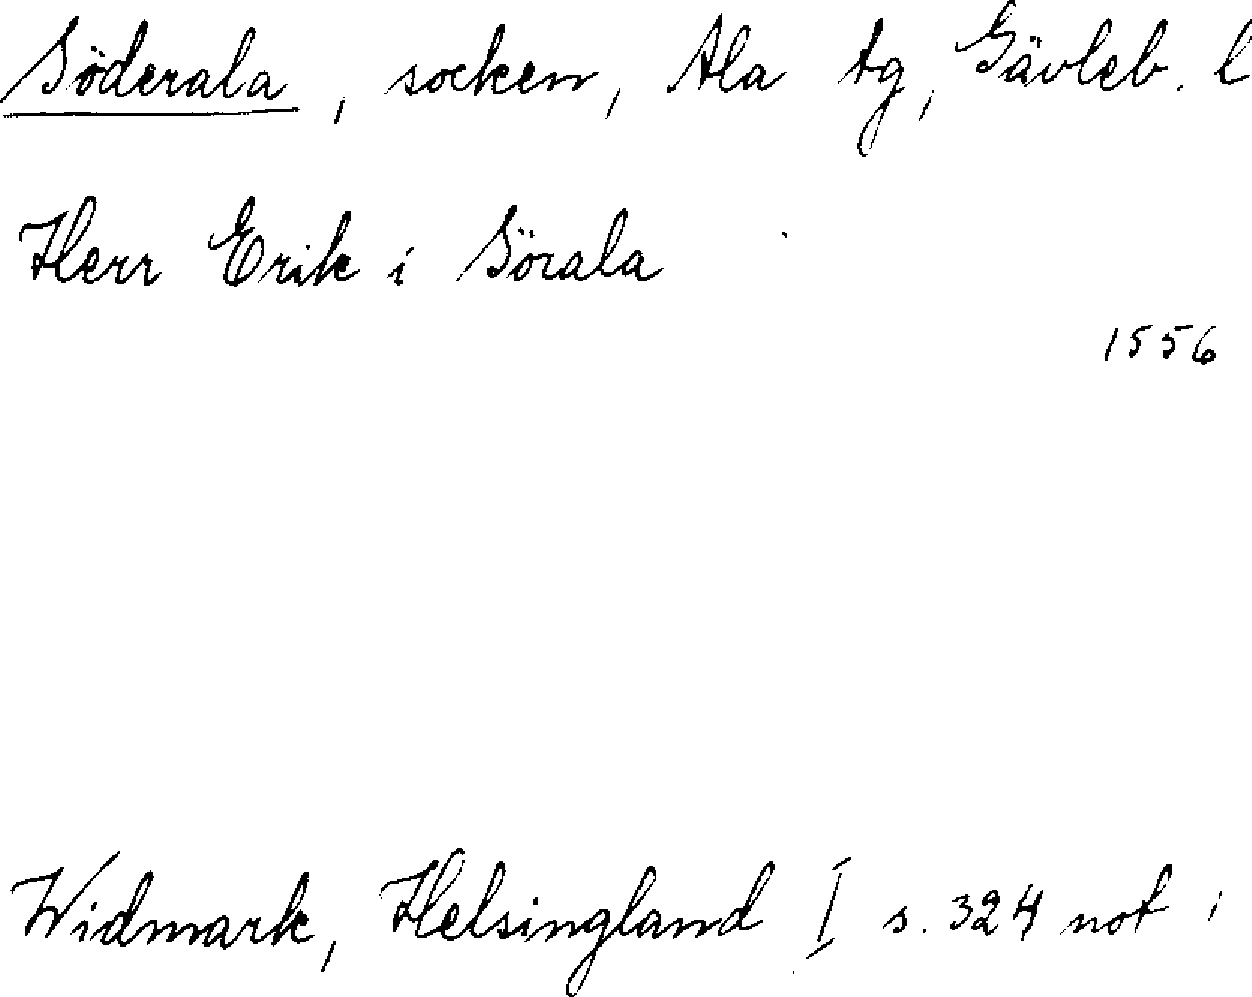 Söderala, socken, Ala tg, Gävleb. l
Herr Erik i Sörala
1556
Widmark, Helsingland I s. 324 not 1